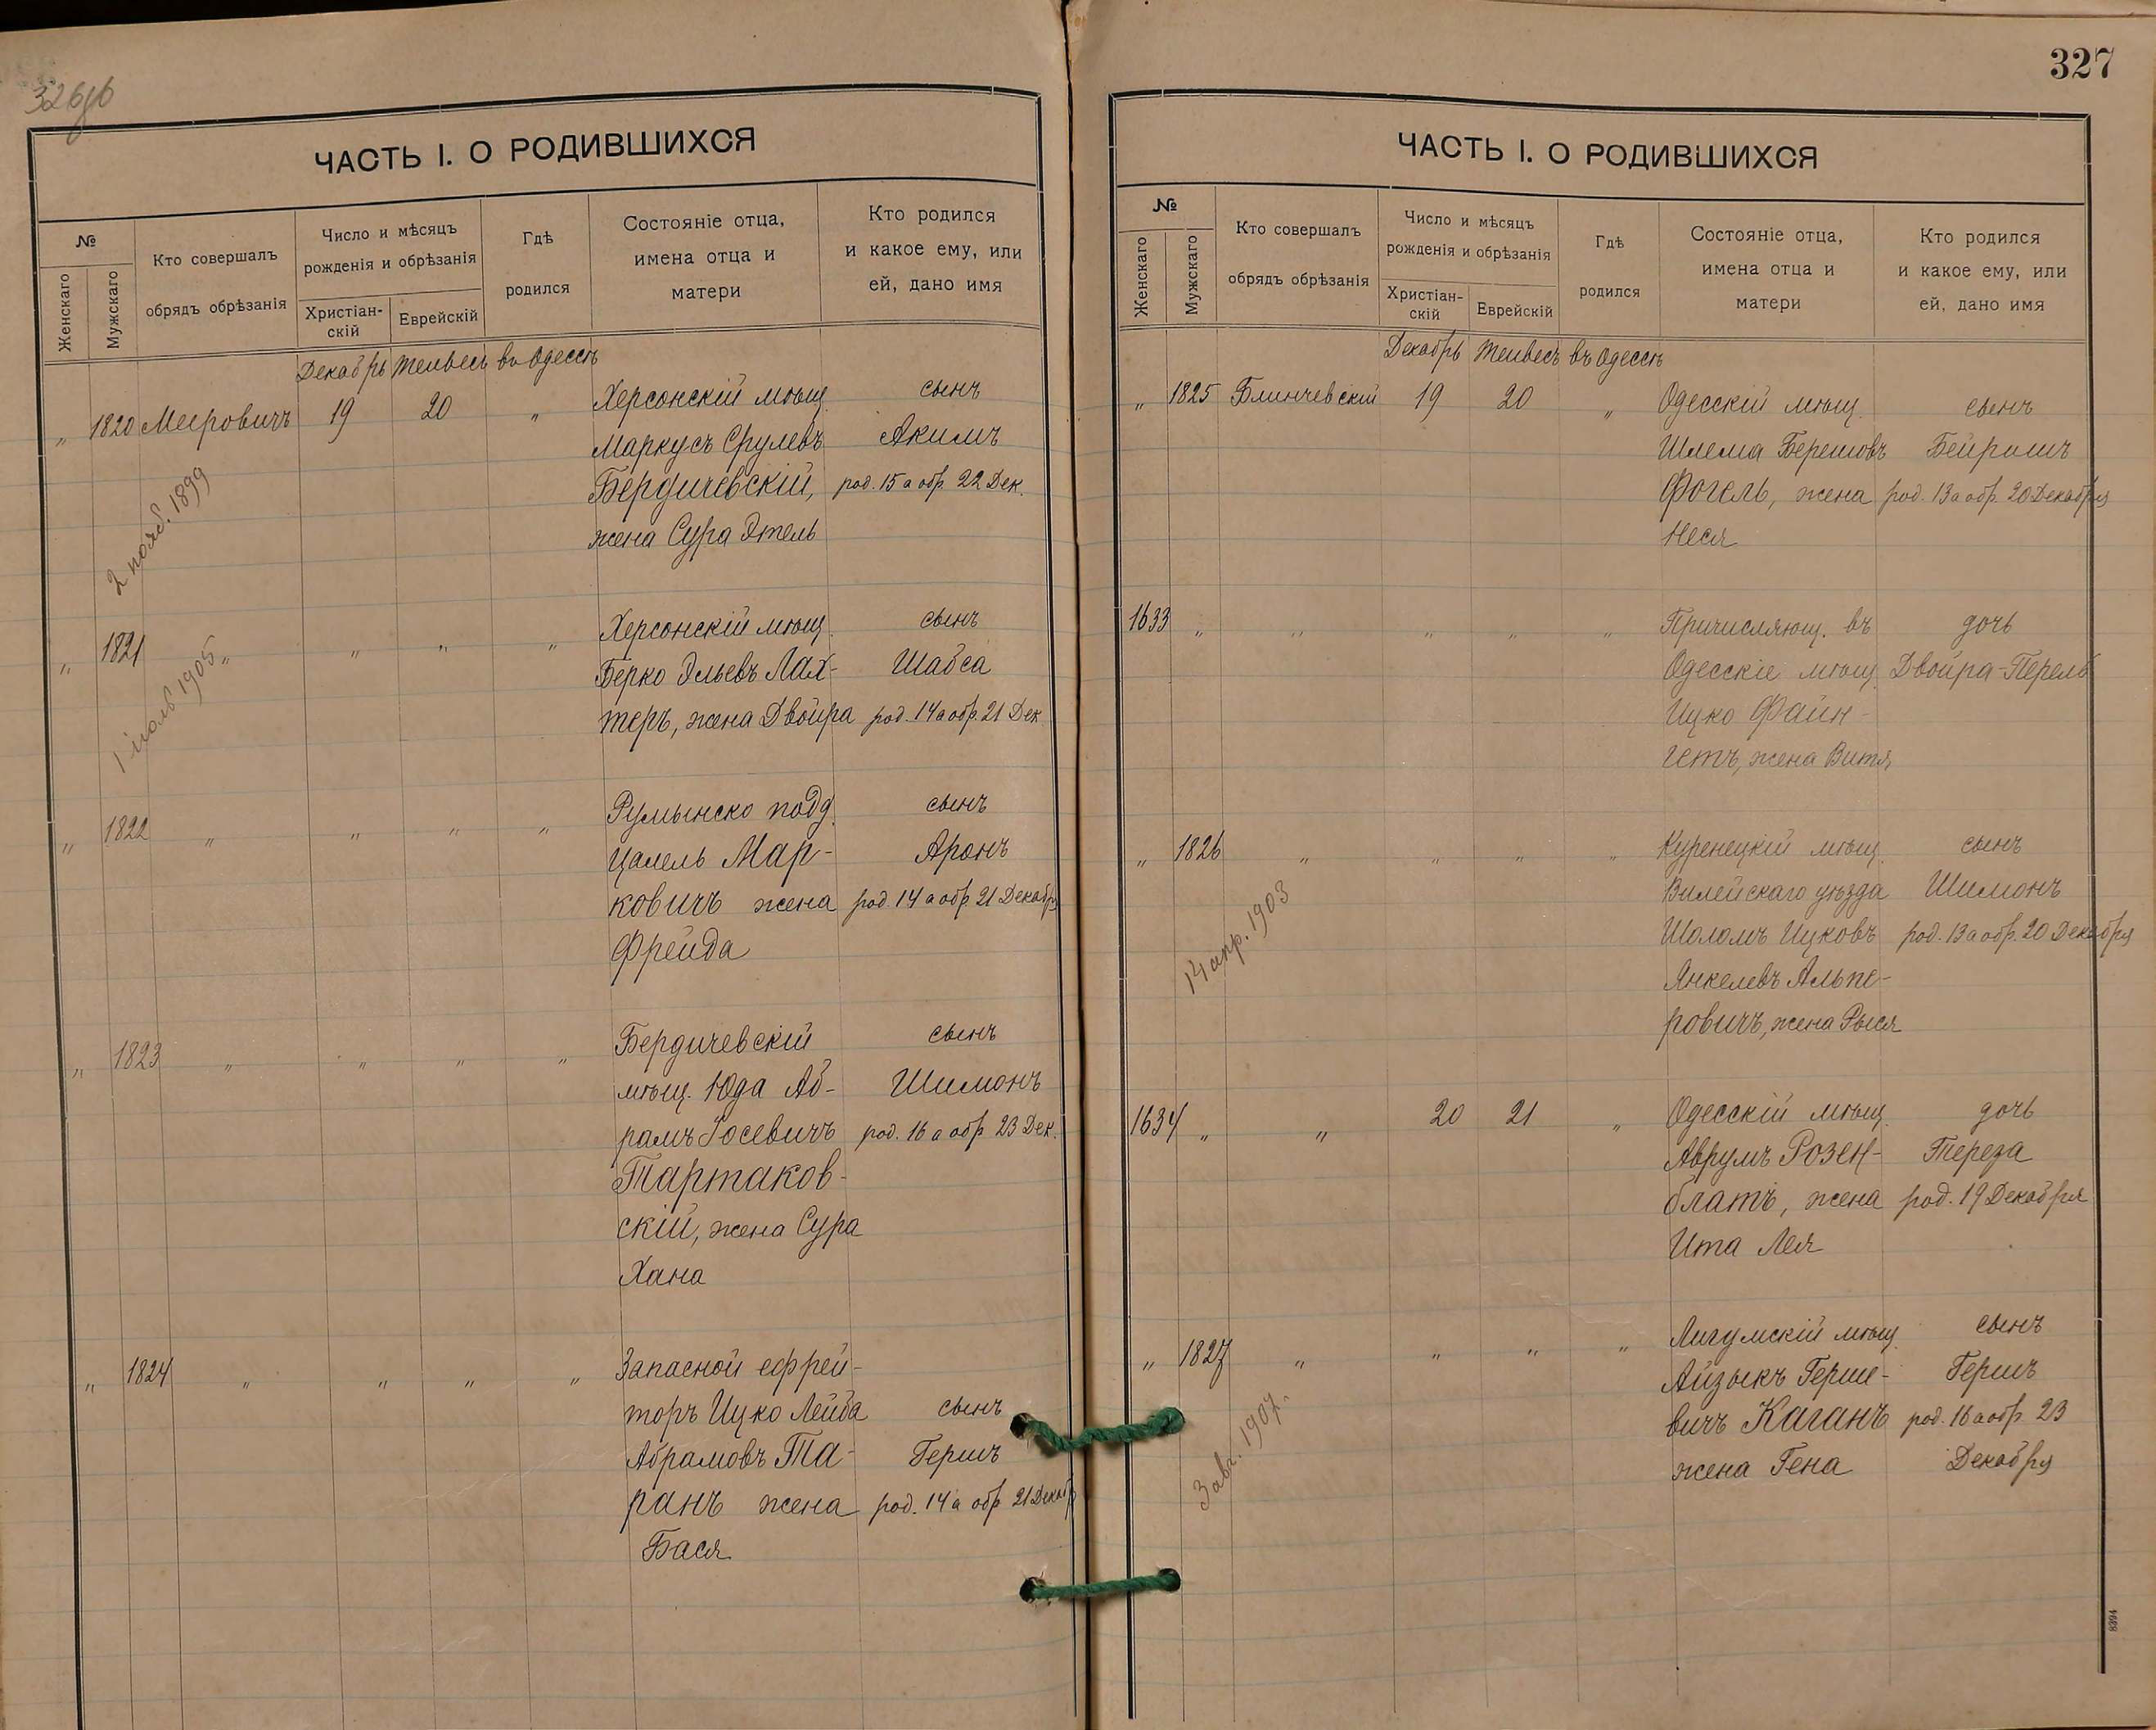 326об
ЧАСТЬ I. О РОДИВШИХСЯ
№
Женскаго
Мужскаго
Кто совершалъ
обрядъ обрѣзанія
Число и мѣсяцъ
рожденія и обрѣзанія
Христіан-
скій
Еврейскій
Гдѣ
родился
Состояніе отца,
имена отца и
матери
Кто родился
и какое ему, или
ей, дано имя
Декабрь Тейвесъ въ Одессѣ
" 1820 Меѣровичъ 19 20 " Херсонскій мѣщ. сынъ
Маркусъ Срулевъ Акимъ
Бердичевскій, род. 15 а обр. 22 Дек.
жена Сура Этель
2 нояб. 1899
" 1821 " " " " Херсонскій мѣщ. сынъ
Берко Эльевъ Лах- Шабса
теръ, жена Двойра род. 14 а обр. 21 Дек
1 іюль 1905
" 1822 " " " " Румынско подд. сынъ
Цалель Мар- Аронъ
ковичъ жена род. 14 а обр 21 Декабря
Фрейда
" 1823 " " " " Бердичевскій сынъ
мѣщ. Юда Аб- Шимонъ
рамъ Іосевичъ род. 16 а обр 23 Дек.
Тартаков-
скій, жена Сура
Хана
" 1824 " " " " Запасной ефрей-
торъ Ицко Лейба сынъ
Абрамовъ Та- Гершъ
ранъ жена род. 14 а обр 21 Декабр
Бася
327
ЧАСТЬ I. О РОДИВШИХСЯ
№
Женскаго
Мужскаго
Кто совершалъ
обрядъ обрѣзанія
Число и мѣсяцъ
рожденія и обрѣзанія
Христіан-
скій
Еврейскій
Гдѣ
родился
Состояніе отца,
имена отца и
матери
Кто родился
и какое ему, или
ей, дано имя
Декабрь Тейвесъ въ Одессѣ
" 1825 Блинчевскій 19 20 " Одесскій мѣщ. сынъ
Шлема Берешовъ Бейришъ
Фогель, жена род. 13 а обр. 20 Декабря
Неся
1633 " " " " " Причисляющ. въ дочь
Одесскіе мѣщ. Двойра-Перель
Ицко Файн-
гетъ, жена Витя
" 1826 " " " " Куренецкій мѣщ. сынъ
Вилейскаго уѣзда Шимонъ
Шоломъ Ицковъ род. 13 а обр. 20 Декабря
Янкелевъ Альпе-
ровичъ, жена Рыся
14 апр. 1903
1634 " " 20 21 " Одесскій мѣщ. дочь
Аврумъ Розен- Тереза
блатъ, жена род. 19 Декабря
Ита Лея
" 1827 " " " " Лигумскій мѣщ. сынъ
Айзыкъ Герше- Гершъ
вичъ Каганъ род. 16 а обр. 23
жена Гена Декабря
3 авг. 1907.
8394